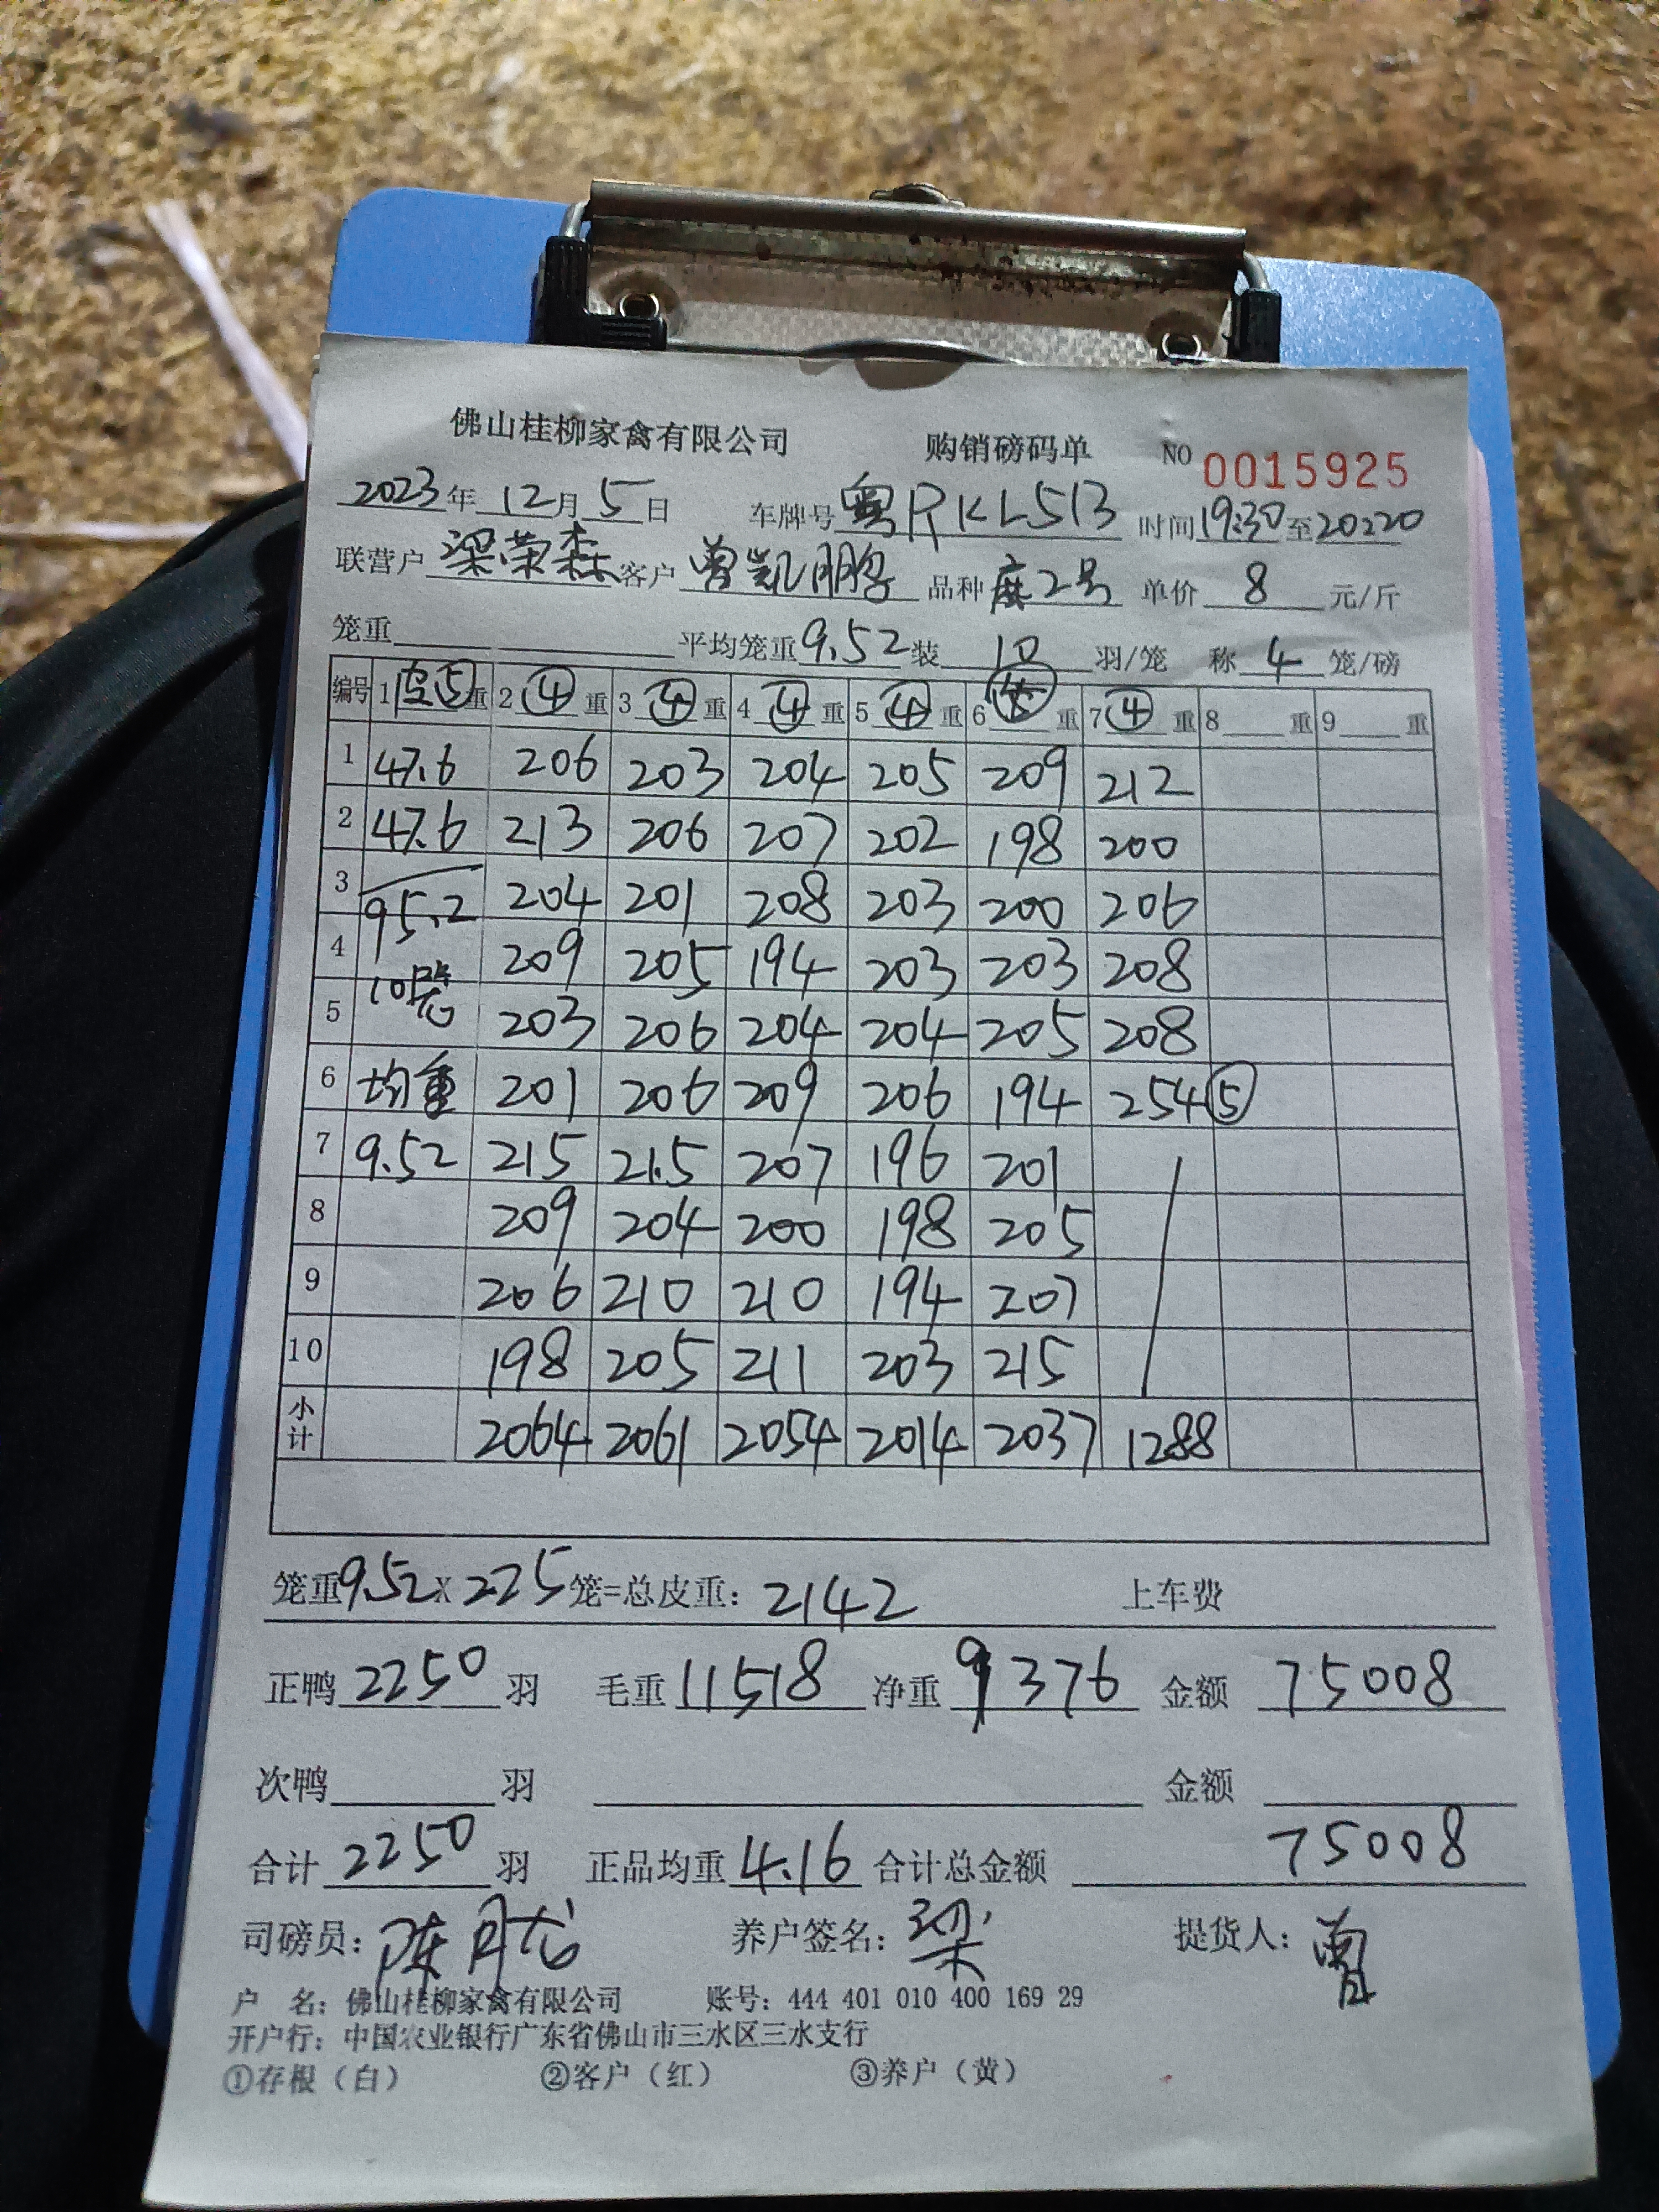 佛山桂柳家禽有限公司 购销磅码单 NO 0015925
2023年12月5日 车牌号粤RKL513 时间19:30至20:20
联营户梁荣森客户曾凯鹏 品种麻2号 单价8元/斤
笼重 平均笼重9.52装10羽/笼 称4笼/磅
编号 1皮⑤重 2④重 3④重 4④重 5④重 6重 7④重 8重 9重
1 47.6 206 203 204 205 209 212
2 47.6 213 206 207 202 198 200
3 95.2 204 201 208 203 200 206
4 10笼 209 205 194 203 203 208
5 203 206 204 204 205 208
6 均重 201 206 209 206 194 254⑤
7 9.52 215 21.5 207 196 201
8 209 204 200 198 205
9 206 210 210 194 207
10 198 205 211 203 215
小计 2064 2061 2054 2014 2037 1288
笼重9.52X225笼=总皮重：2142 上车费
正鸭2250羽 毛重11518净重9376 金额75008
次鸭 羽 金额
合计2250羽 正品均重4.16合计总金额75008
司磅员：陈 养户签名：梁 提货人：曾
户 名：佛山桂柳家禽有限公司 账号：444 401 010 400 169 29
开户行：中国农业银行广东省佛山市三水区三水支行
①存根（白） ②客户（红） ③养户（黄）